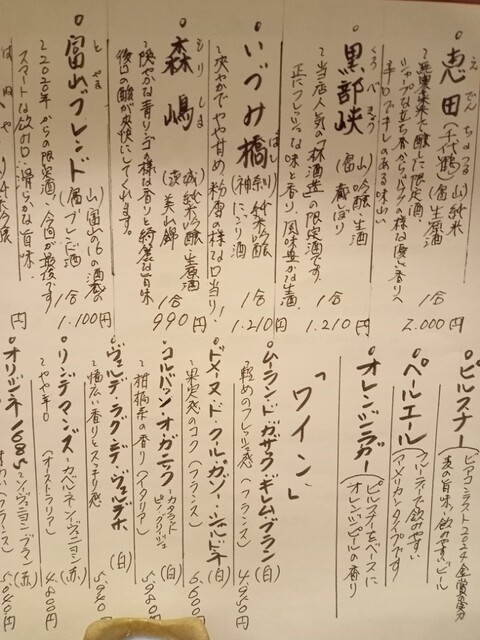 恵田 えでん
(千代鶴) ちよつる
(富山)純米
生原酒
シャープな立ち香から
辛口でキレのある味わい
1合 2,000円
黒部峡 くろべきょう
(富山)吟醸・生酒
蔵しぼり
〜当店人気の「林酒造」の限定酒です。
正にフレッシュな味と香り、風味豊かな生酒
1合 1,210円
いづみ橋 ばし
(神奈川)純米吟醸
にごり酒
〜爽やかでやや甘め、粉雪の様な口当り!
1合 1,210円
森嶋 もりしま
(茨城)純米吟醸・生原酒
美山錦
爽やかな青リンゴの様な香りと綺麗な旨味
後口の酸が爽快にしてくれます。
1合 990円
富山ブレンド とやま
(富山)富山の16の酒蔵の
ブレンド酒
〜2020年からの限定酒、今回が最後です
スマートな飲み口・滑らかな旨味。
1合 1,100円
円
ピルスナー
(ビアコンテスト2024金賞の実力
麦の旨味、飲みやすいビール
ペールエール
(フルーティで飲みやすい
アメリカンタイプです
オレンジラガー
(ピルスナーをベースに
オレンジピールの香り
「ワイン」
ムーラン・ド・ガサック・ギレム・ブラン(白)
〜軽めのフレッシュ感(フランス) 4,950円
ドメーヌ・ド・クルガゾー・シャルドネ(白)
〜果実感のコク(フランス) 6,600円
コルバッソ・オガニック・カタラット
ピノ・グリージョ(白)
〜柑橘系の香り(イタリア) 5,940円
ヴェルデ・ラグ・デ・ヴェルデホ(白)
〜幅広い香りとスッキリ感 5,940円
リンデマンズ・カベルネ・ソーヴィニヨン(赤)
〜やや辛口(オーストラリア) 4,800円
オリジネ1685・ソーヴィニヨン・ブラン
(フランス) 5,040円